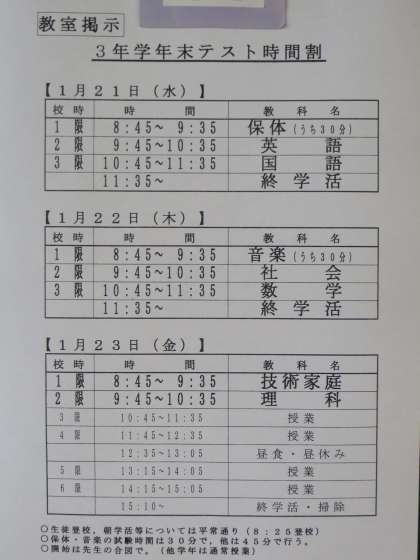 教室掲示
3年学年末テスト時間割
【1月21日(水)】
校時 時間 教科名
1限 8:45~ 9:35 保体(うち30分)
2限 9:45~10:35 英語
3限 10:45~11:35 国語
11:35~ 終学活
【1月22日(木)】
校時 時間 教科名
1限 8:45~ 9:35 音楽(うち30分)
2限 9:45~10:35 社会
3限 10:45~11:35 数学
11:35~ 終学活
【1月23日(金)】
校時 時間 教科名
1限 8:45~ 9:35 技術家庭
2限 9:45~10:35 理科
3限 10:45~11:35 授業
4限 11:45~12:35 授業
12:35~13:05 昼食・昼休み
5限 13:15~14:05 授業
6限 14:15~15:05 授業
15:10~ 終学活・掃除
○生徒登校,朝学活等については平常通り(8:25登校)
○保体・音楽の試験時間は30分で,他は45分で行う。
○開始は先生の合図で。(他学年は通常授業)